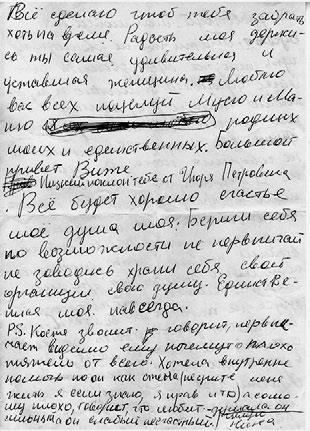 Всё сделаю чтоб тебя забрать
хоть на время. Радость моя держи-
сь ты самая удивительная и
уставшая женщина. Люблю
вас всех поцелуй Мусю и Ма-
родних
моих и единственных. Большой
привет Вите
Низкий поклон тебе от Игоря Петровича
. Всё будет хорошо счастье
моё душа моя. Береги себя
по возможности не нервничай
не заводись храни себя свой
организм свою душу. Единстве-
ная моя. навсегда.
P.S. Костя звонит. говорит, нервни-
чает видимо ему почему-то плохо
тяжело от всего. Хотела внутренне
помочь но он как стена
я если знаю, я прав что
му плохо, говорит, что любит
он слабый несчастный.